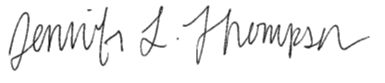 Jennifer L. Thompson